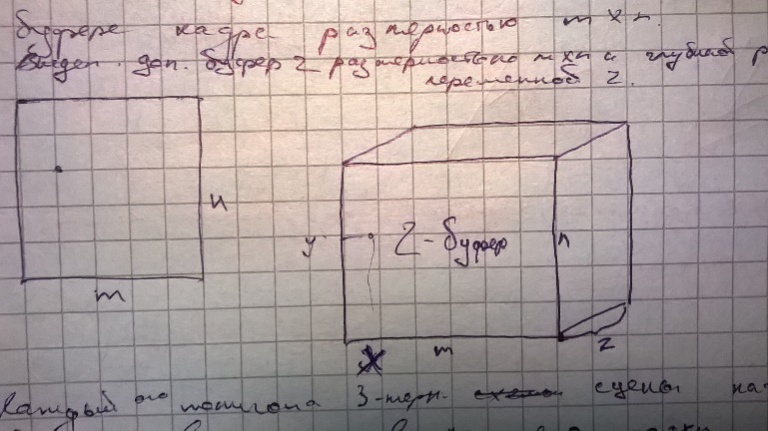 буфере кадре размерностью m x n.
Выдел. доп. буфер z размерностью m x n и глубиной р
переменной z.
n
m
y
Z-буфер
n
x
m
z
Каждый полигона 3-мерн. сцены на